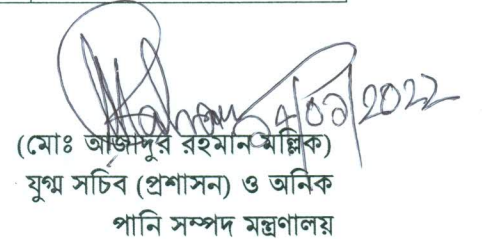 (মোঃ আজাদুর রহমান মল্লিক)
যুগ্ম সচিব (প্রশাসন) ও অনিক
পানি সম্পদ মন্ত্রণালয়